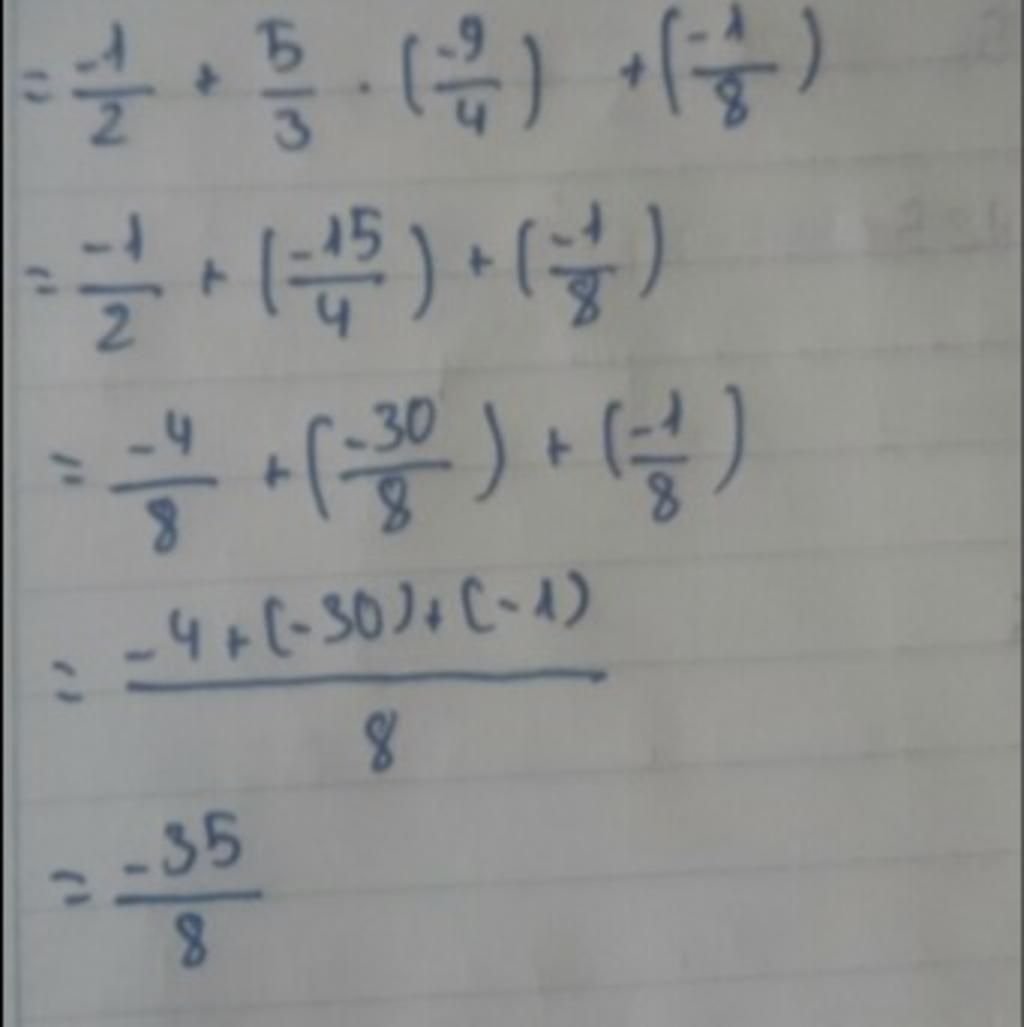 = -1/2 + 5/3 · (-9/4) + (-1/8)
= -1/2 + (-15/4) + (-1/8)
= -4/8 + (-30/8) + (-1/8)
= -4+(-30)+(-1)/8
= -35/8